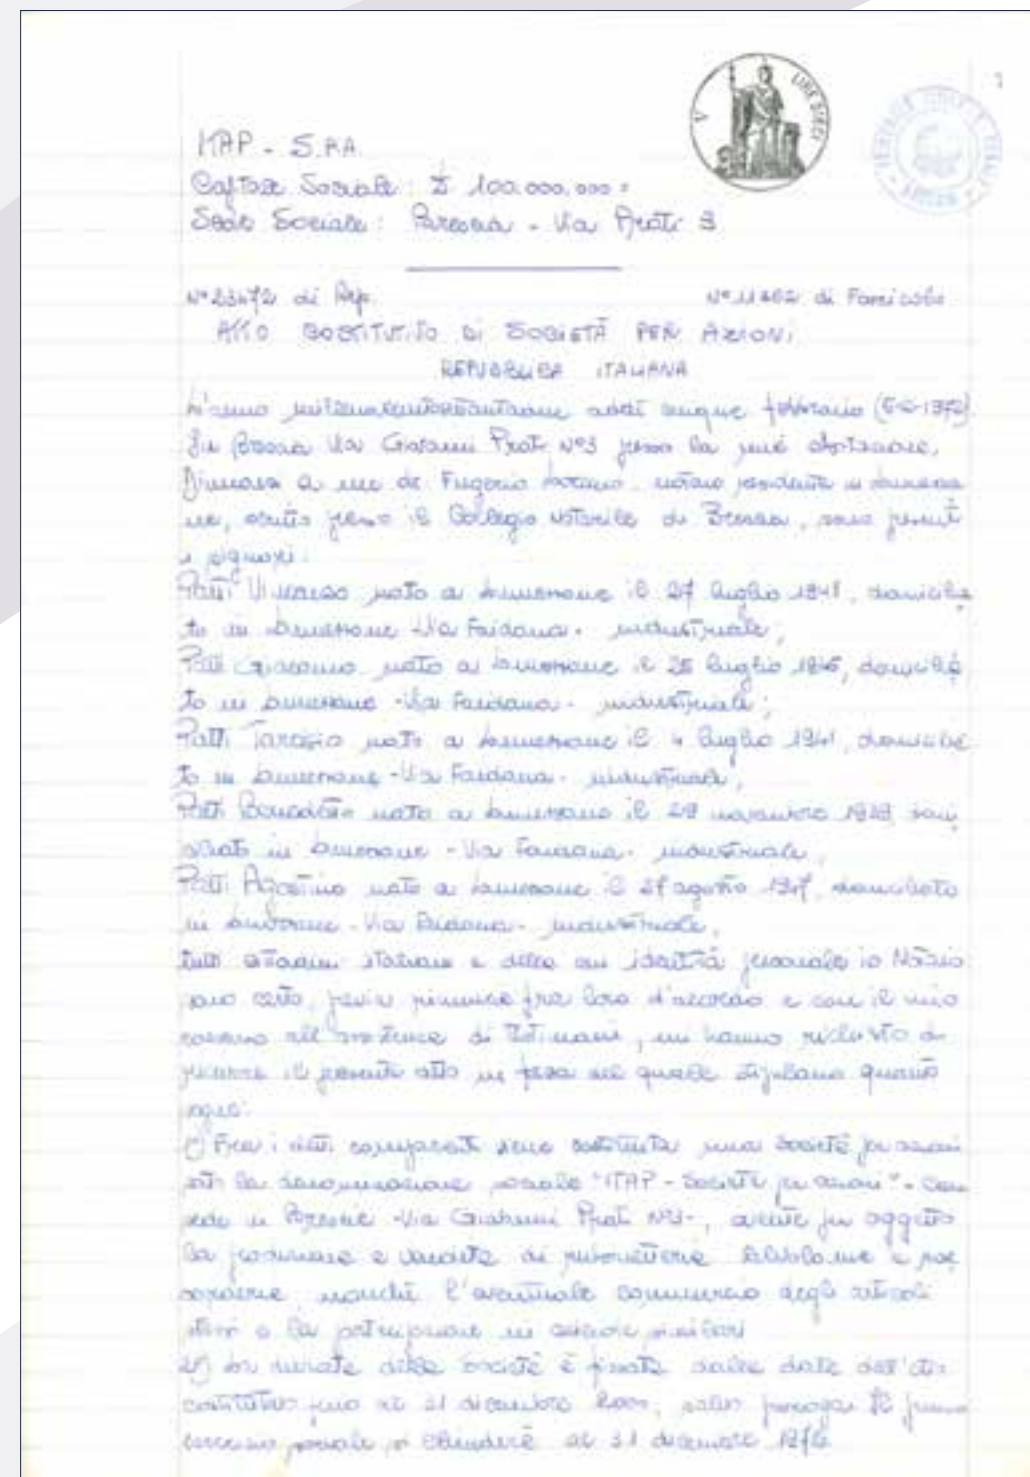 LIRE DIECI
ITAP - S.P.A.
Capitale Sociale: £ 100.000.000=
Sede Sociale: Brescia - Via Prati 3
N° di Rep. N° di Fascicolo
ATTO COSTITUTIVO DI SOCIETÀ PER AZIONI
REPUBBLICA ITALIANA
L'anno millenovecentosettantadue addì cinque febbraio (5-2-1972)
In Brescia Via Giovanni Prati N°3 presso la mia abitazione,
Dinnanzi a me dr. notaio residente in Lumezza
ne, iscritto presso il Collegio Notarile di Brescia, sono presenti
i signori:
nato a Lumezzane il 27 luglio domicilia
to in Lumezzane - Via Faidana - industriale;
Giacomo nato a Lumezzane il 25 luglio domicilia
to in Lumezzane - Via Faidana - industriale;
Tarcisio nato a Lumezzane il 4 luglio 1941, domicilia
to in Lumezzane - Via Faidana - industriale;
Benedetto nato a Lumezzane il novembre domi
ciliato in Lumezzane - Via Faidana - industriale;
Agostino nato a Lumezzane il 27 agosto domiciliato
in Lumezzane - Via Faidana - industriale,
tutti cittadini italiani e della cui identità personale io Notaio
sono certo, previa rinuncia fra loro d'accordo e con il mio
consenso all'assistenza di testimoni, mi hanno richiesto di
ricevere il presente atto in forza del quale stipulano quanto
segue:
1°) Fra i comparenti viene costituita una Società per azioni
sotto la denominazione sociale "ITAP - Società per azioni" - con
sede in Brescia - Via Giovanni Prati N°3-, avente per oggetto
la produzione e vendita di rubinetterie e
nonché l'eventuale commercio degli articoli
stessi e la in aziende similari
2°) La durata della società è fissata dalla data dell'atto
costitutivo fino al 31 dicembre 2000, salvo proroga. Il primo
esercizio sociale si chiuderà al 31 dicembre